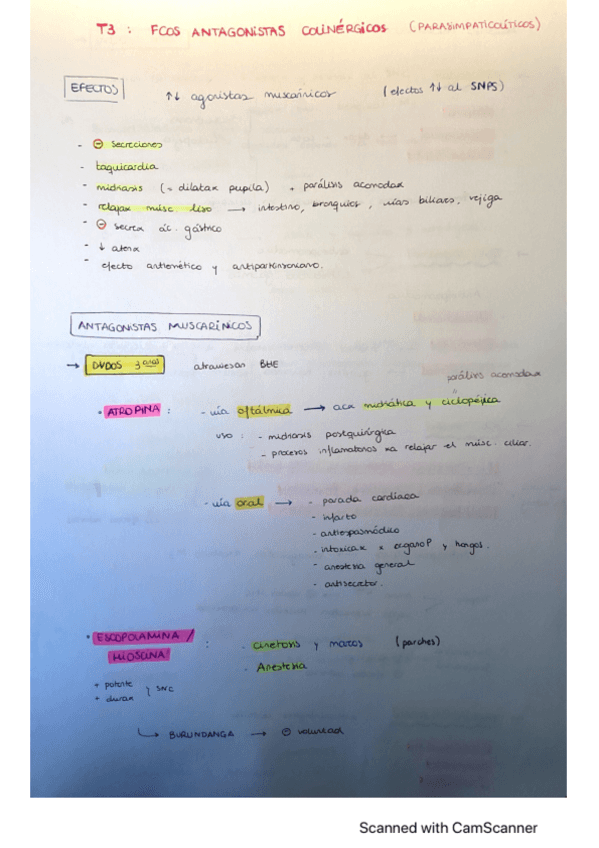 T3 : FCOS ANTAGONISTAS COLINÉRGICOS (PARASIMPATICOLÍTICOS)
EFECTOS
↑↓ agonistas muscarínicos (efectos ↑↓ al SNPS)
- ⊖ secreciones
- taquicardia
- midriasis (= dilatax pupila) + parálisis acomodax
- relajax músc. liso → intestino, bronquios, vías biliares, vejiga
- ⊖ secrex ác. gástrico
- ↓ atenx
- efecto antiemético y antiparkinsoniano.
ANTAGONISTAS MUSCARÍNICOS
→ DVDOS 3 arios atraviesan BHE
parálisis acomodax
• ATROPINA : - vía oftálmica → acx midriática y ciclopéjica
uso : - midriasis postquirúrgica
- procesos inflamatorios xa relajar el músc. ciliar.
- vía oral → - parada cardíaca
- infarto
- antiespasmódico
- intoxicax x organoP y hongos.
- anestesia general
- antisecretor.
• ESCOPOLAMINA / : - cinetosis y mareos (parches)
HIOSCINA - Anestesia
+ potente
+ durax } SNC
↳ BURUNDANGA → ⊖ voluntad
Scanned with CamScanner